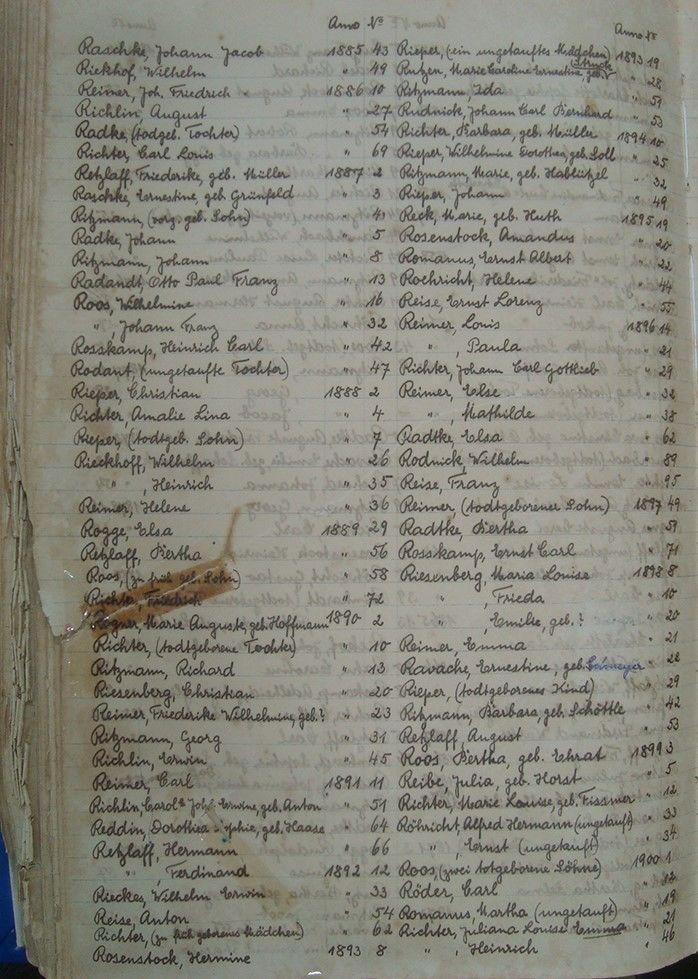 Anno No
Raschke, Johann Jacob 1885 43
Riekhof, Wilhelm " 49
Reimer, Joh. Friedrich 1886 10
Richlin, August " 27
Radke, (todgeb. Tochter) " 54
Richter, Carl Louis " 69
Retzlaff, Friederike, geb. Müller 1887 2
Raschke, Ernestine, geb. Grünfeld " 3
Ritzmann, (vorz. geb. Sohn) " 4
Radke, Johann " 5
Ritzmann, Johann " 8
Radandt, Otto Paul Franz " 13
Roos, Wilhelmine " 16
" , Johann Franz " 32
Rosskamp, Heinrich Carl " 42
Rodant, (ungetaufte Tochter) " 47
Rieper, Christian 1888 2
Richter, Amalie Lina " 4
Rieper, (todtgeb. Sohn) " 7
Rieckhoff, Wilhelm " 26
" , Heinrich " 35
Reimer, Helene " 36
Rogge, Elsa 1889 29
Retzlaff, Bertha " 56
Roos, (zu früh geb. Sohn) " 58
Richter, Friedrich " 72
Rogner, Marie Auguste, geb. Hoffmann 1890 2
Richter, (todtgeborene Tochter) " 10
Ritzmann, Richard " 13
Riesenberg, Christian " 20
Reimer, Friederike Wilhelmine, geb.? " 23
Ritzmann, Georg " 31
Richlin, Erwin " 45
Reimer, Carl 1891 11
Richlin, Erwine, geb. Anton " 51
Reddin, Dorothea Sophie, geb. Haase " 64
Retzlaff, Hermann " 66
" Ferdinand 1892 12
Rieckes, Wilhelm Erwin " 33
Reise, Anton " 54
Richter, (zu früh geborenes Mädchen) " 62
Rosenstock, Hermine 1893 8
Anno No
Rieper, (ein ungetauftes Mädchen) 1893 19
Rutzen, Marie Caroline Ernestine, geb. Struck " 28
Ritzmann, Ida " 51
Rudnick, Johann Carl Bernhard " 53
Richter, Barbara, geb. Müller 1894 10
Rieper, Wilhelmine Dorothea, geb. Soll " 25
Ritzmann, Marie, geb. Hablützel " 32
Rieper, Johann " 49
Reck, Marie, geb. Huth 1895 19
Rosenstock, Amandus " 20
Romanus, Ernst Albert " 22
Rochricht, Helene " 44
Reise, Ernst Lorenz " 55
Reimer, Louis 1896 14
" , Paula " 21
Richter, Johann Carl Gottlieb " 29
Reimer, Else " 32
" , Mathilde " 38
Radtke, Elsa " 62
Rodnick, Wilhelm " 89
Reise, Franz " 95
Reimer, (todtgeborener Sohn) 1897 49
Radtke, Bertha " 51
Rosskamp, Ernst Carl " 71
Riesenberg, Maria Louise 1898 8
" , Frieda " 10
" , Emilie, geb.? " 20
Reimer, Emma " 21
Ravache, Ernestine, geb. " 28
Rieper, (todtgeborenes Kind) " 29
Ritzmann, Barbara, geb. Schöttle " 42
Retzlaff, August " 53
Roos, Bertha, geb. Ehrat 1899 3
Reibe, Julia, geb. Horst " 5
Richter, Marie Louise, geb. Fissmer " 12
Röhricht, Alfred Hermann (ungetauft) " 33
" , Ernst (ungetauft) " 34
Roos, (zwei totgeborene Söhne) 1900 1
Röder, Carl " 12
Romanus, Martha (ungetauft) " 19
Richter, Juliana Louise Emma " 21
" , Heinrich " 46